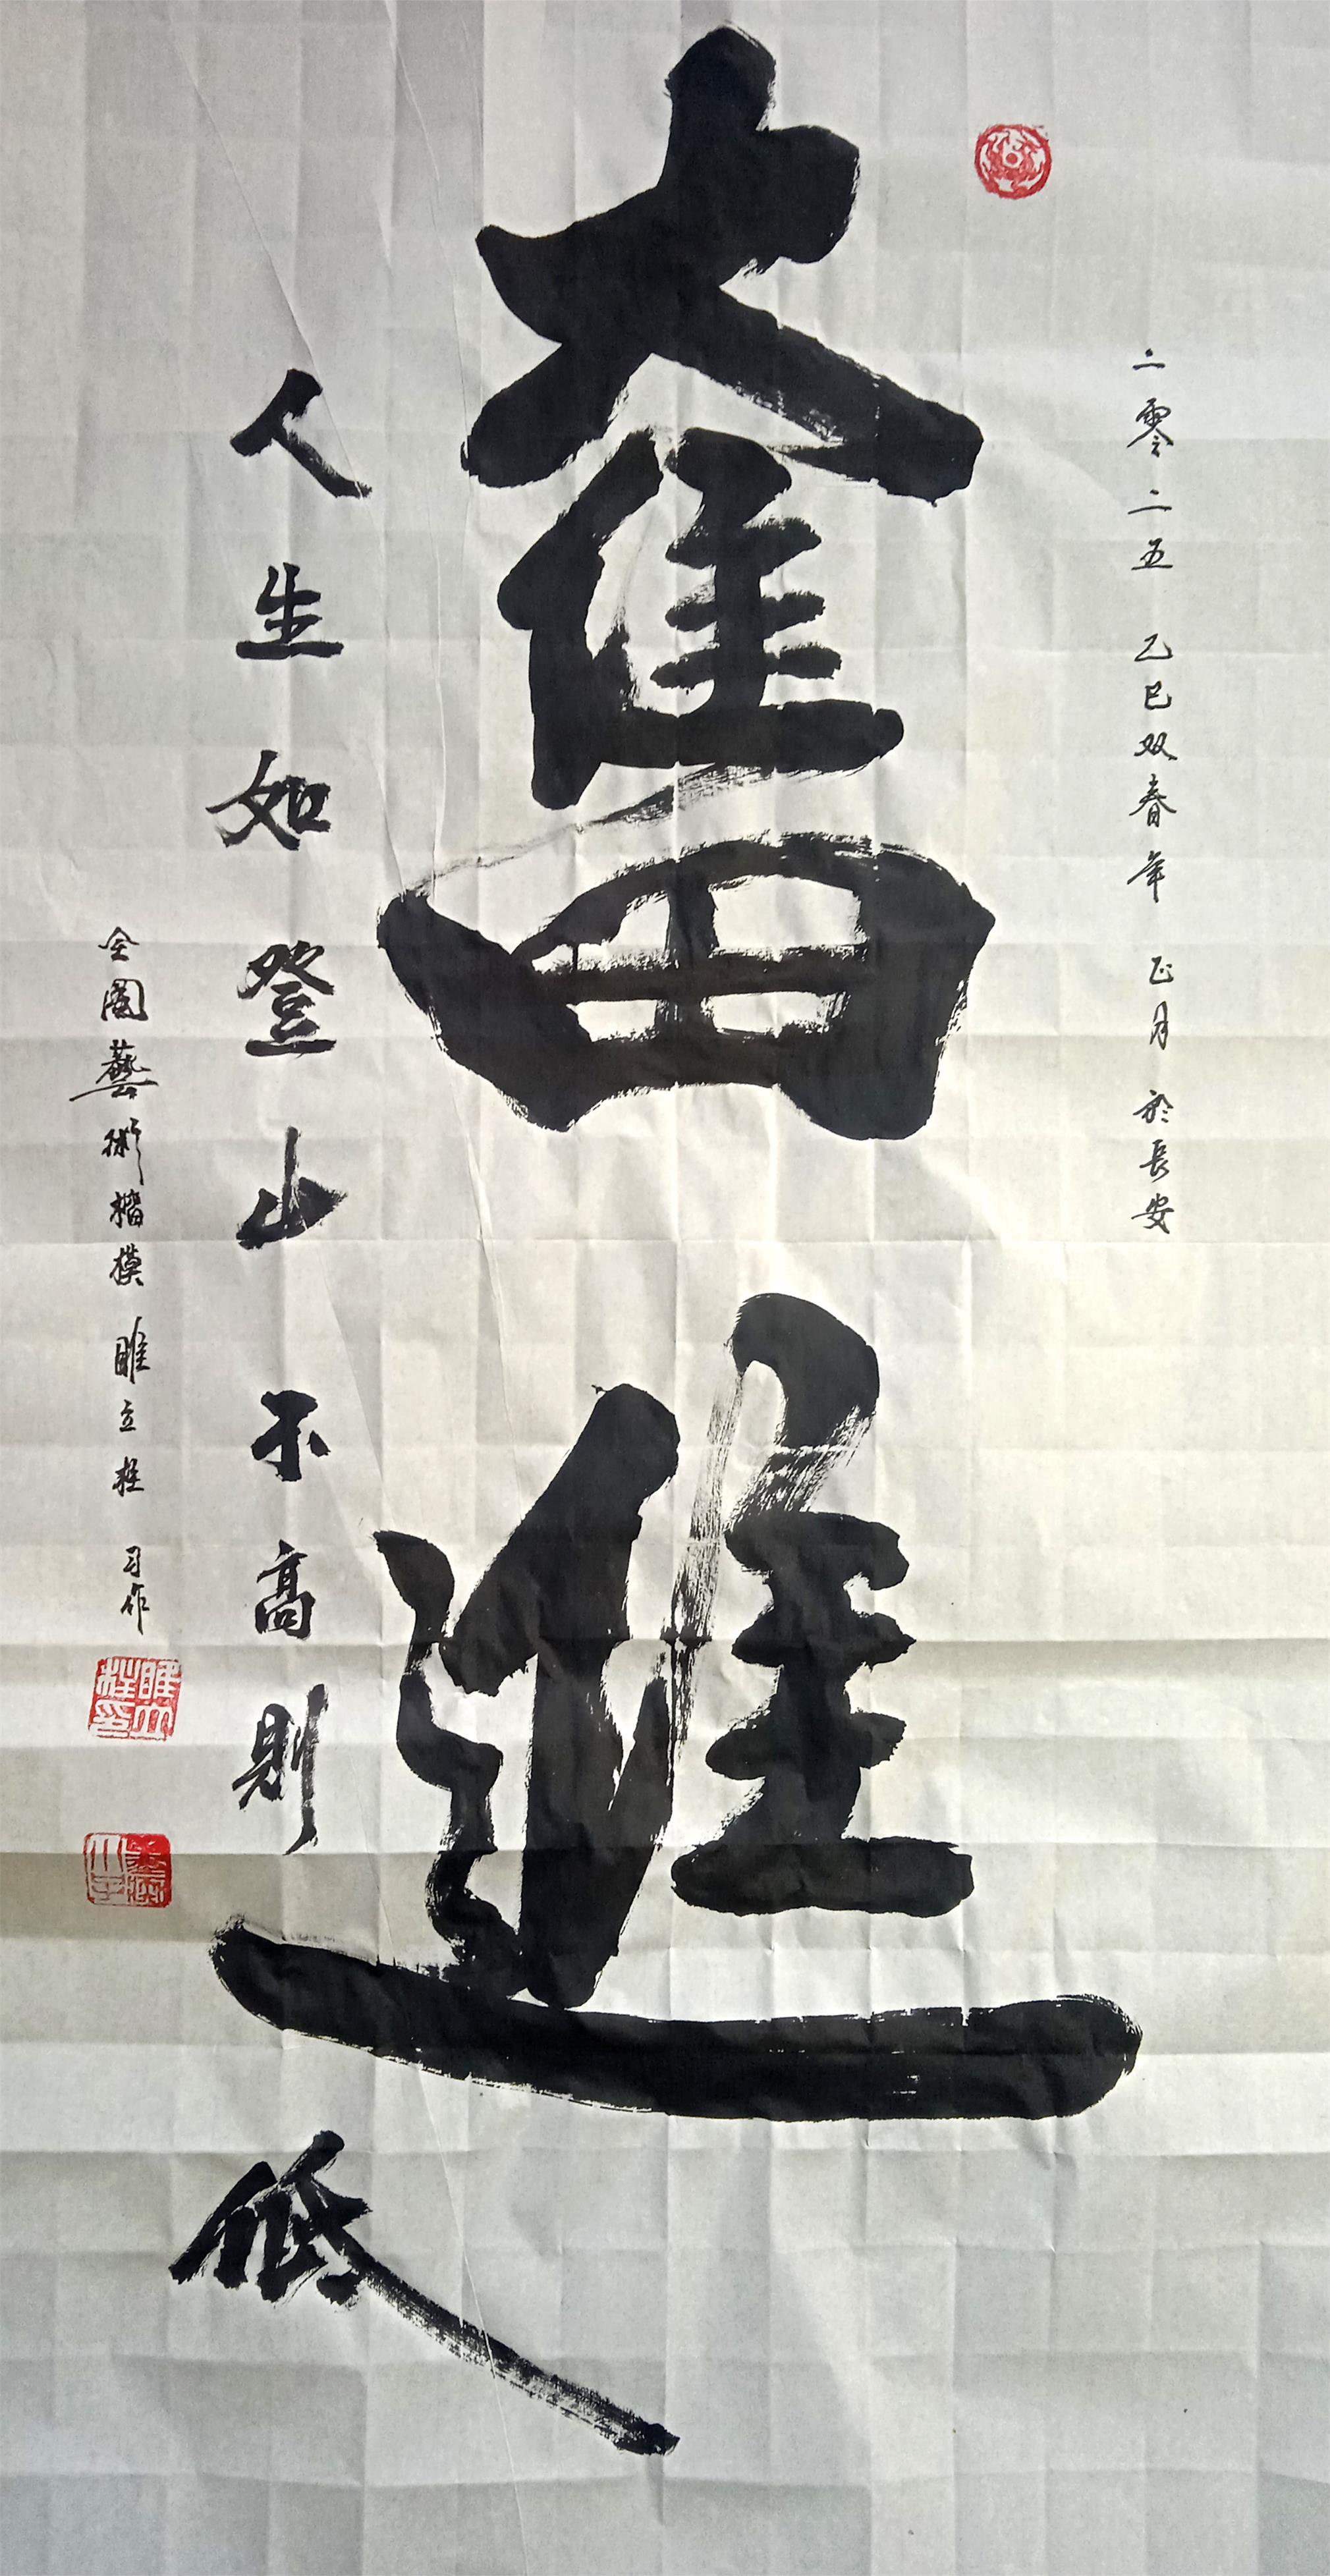 二零二五 乙巳双春年 正月 於長安
奮進
人生如登山不高則低
全國藝術楷模 睢立柱 习作
睢立柱印